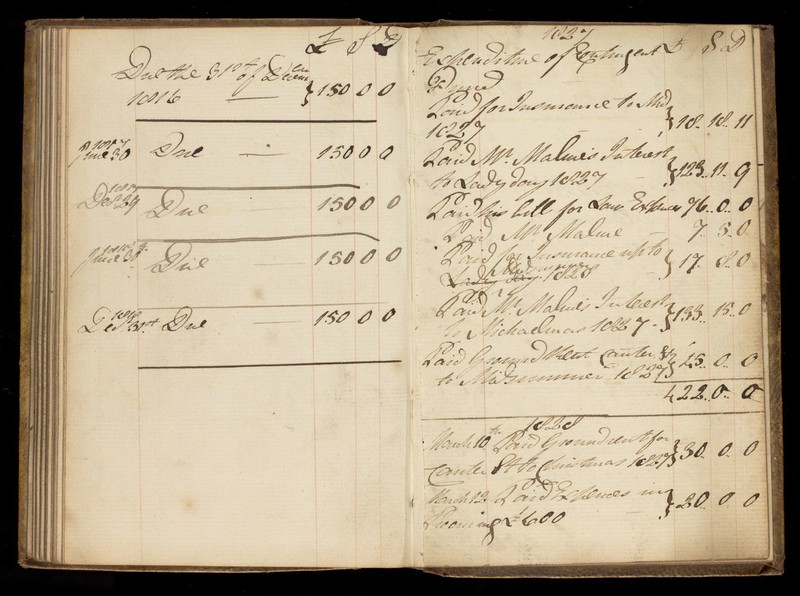 £ S D
Due the 31st of Decem
1816 — } 150 0 0
June 30 Due — 150 0 0
Due — 150 0 0
June 30 Due — 150 0 0
Decr 31st Due — 150 0 0
1827
Expenditure of Contingent £ S D
Paid for Insurance to Mid
1827 } 18.. 18.. 11
Paid Mr. Malme's Interest
to Lady day 1827 — } 123.. 11.. 9
Paid his bill for Law Expences 76.. 0.. 0
Paid Mr Malme — 7.. 5.. 0
Paid for Insurance up to
Midsummer
Lady day 1828 — } 17.. 8.. 0
Paid Mr. Malme's Interest
to Michaelmas 1827 - } 133.. 15.. 0
Paid Ground Rent Canter St
to Midsummer 1827 } 45.. 0.. 0
422.. 0.. 0
1828
March 10th Paid Ground rent for
Canter St to Christmas 1827 } 30.. 0.. 0
March 12 Paid Expences in
£600 — } 20.. 0.. 0